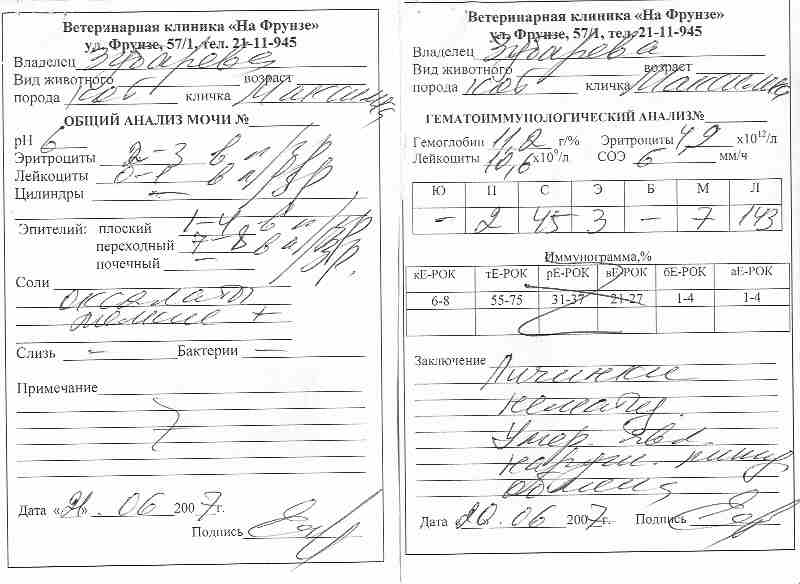 Ветеринарная клиника «На Фрунзе»
ул. Фрунзе, 57/1, тел. 21-11-945
Владелец Зубарева
Вид животного возраст
порода кот кличка Максимиц
ОБЩИЙ АНАЛИЗ МОЧИ №
pH 6
Эритроциты 2-3 в п/зр
Лейкоциты 0-1 в п/зр
Цилиндры —
Эпителий: плоский 1-4 в п/зр
переходный 7-8 в п/зр
почечный —
Соли
оксалаты
+
Слизь — Бактерии —
Примечание
Дата «21» .06 2007г.
Подпись
Ветеринарная клиника «На Фрунзе»
ул. Фрунзе, 57/1, тел. 21-11-945
Владелец Зубарева
Вид животного возраст
порода кот кличка
ГЕМАТОИММУНОЛОГИЧЕСКИЙ АНАЛИЗ№
Гемоглобин 11,2 г/% Эритроциты 4,2 х10¹²/л
Лейкоциты 12,6 х10⁹/л СОЭ 6 мм/ч
Ю П С Э Б М Л
– 2 45 3 – 7 143
Иммунограмма,%
кЕ-РОК тЕ-РОК рЕ-РОК вЕ-РОК бЕ-РОК аЕ-РОК
6-8 55-75 31-37 21-27 1-4 1-4
Заключение Личинки
нематод.
Умер. явл.
наруш.
обмена
Дата 20.06 2007г. Подпись